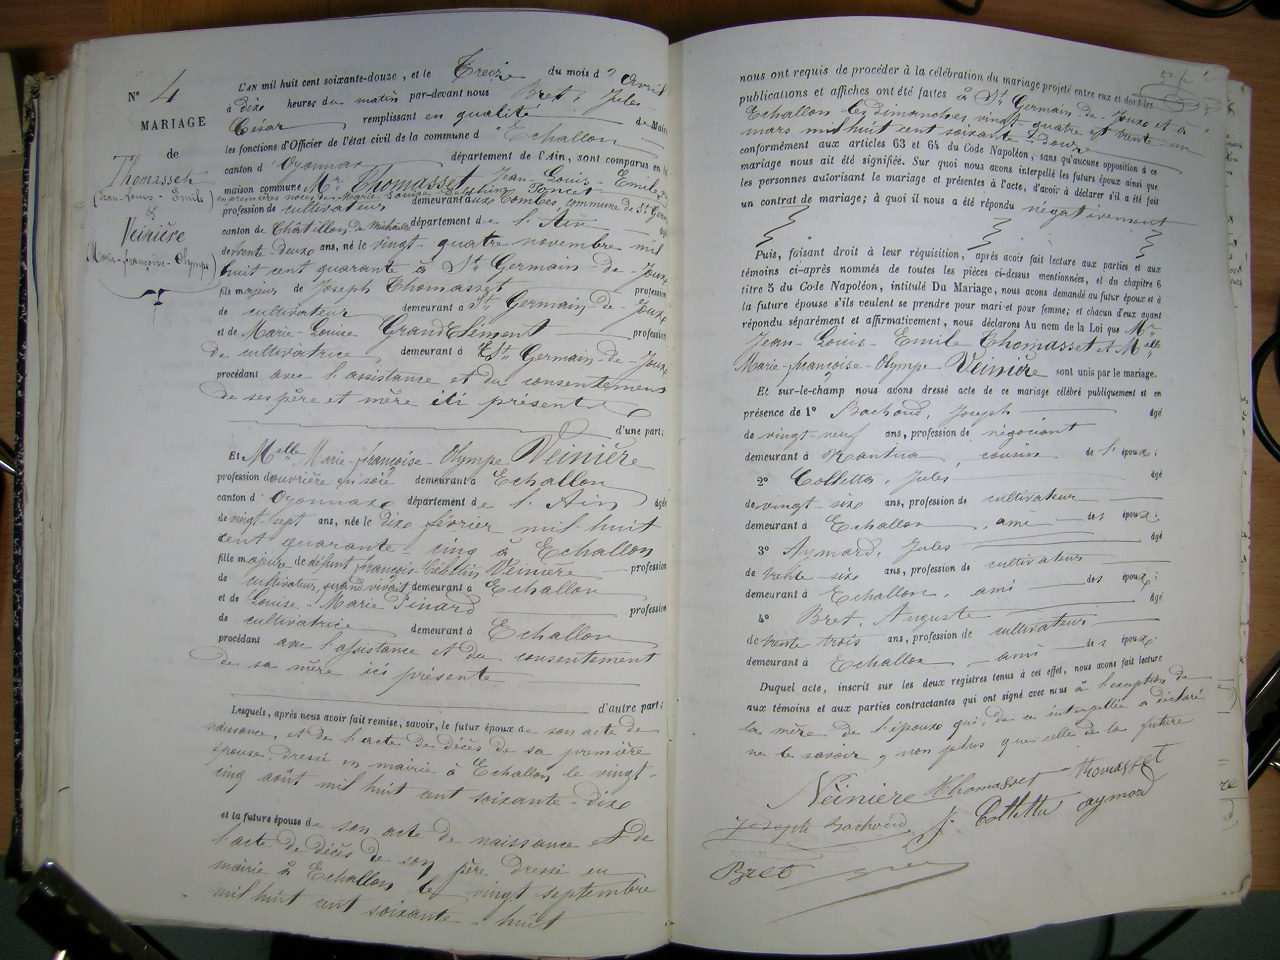 N° 4
MARIAGE
de
Thomasset
(Jean-Louis-Emile)
&
Veinière
(Marie-françoise-Olympe)
L'AN mil huit cent soixante-douze, et le Treize du mois d' Avril
à dix heures du matin par-devant nous Bret, Jules
César remplissant en qualité de Maire
les fonctions d'Officier de l'état civil de la commune d' Echallon
canton d' Oyonnax département de l'Ain, sont comparus en la
maison commune Mr Thomasset Jean-Louis-Emile,
en premières noces de Marie Louise Delphine Poncet
profession de cultivateur demeurant aux Combes, commune de St Germ
canton de Châtillon de Michaille département de l'Ain
de trente deux ans, né le vingt-quatre novembre mil
huit cent quarante à St Germain-de-Joux
fils majeur de Joseph Thomasset profession
de cultivateur demeurant à St Germain-de-Joux
et de Marie-Louise GrandClément profession
de cultivatrice, demeurant à St Germain-de-Joux
procédant avec l'assistance et du consentement
de ses père et mère ici présents
d'une part;
Et Melle Marie-françoise-Olympe Veinière
profession d'ouvrière en soie demeurant à Echallon
canton d' Oyonnax département de l'Ain âgée
de vingt-sept ans, née le dix février mil huit
cent quarante-cinq à Echallon
fille majeure de défunt françois Célestin Veinière profession
de cultivateur, quand vivait demeurant à Echallon
et de Louise-Marie Pinard profession
de cultivatrice demeurant à Echallon
procédant avec l'assistance et du consentement
de sa mère ici présente
d'autre part;
Lesquels, après nous avoir fait remise, savoir, le futur époux de son acte de
naissance, et de l'acte de décès de sa première
épouse dressé en mairie à Echallon le vingt-
cinq août mil huit cent soixante-dix
et la future épouse de son acte de naissance et de
l'acte de décès de son père dressé en
mairie à Echallon le vingt septembre
mil huit cent soixante-huit
nous ont requis de procéder à la célébration du mariage projeté entre eux et dont les
publications et affiches ont été faites à St Germain-de-Joux et à
Echallon les dimanches vingt quatre et trente-un
mars mil huit cent soixante-douze
conformément aux articles 63 et 64 du Code Napoléon, sans qu'aucune opposition à ce
mariage nous ait été signifiée. Sur quoi nous avons interpellé les futurs époux ainsi que
les personnes autorisant le mariage et présentes à l'acte, d'avoir à déclarer s'il a été fait
un contrat de mariage; à quoi il nous a été répondu négativement
Puis, faisant droit à leur réquisition, après avoir fait lecture aux parties et aux
témoins ci-après nommés de toutes les pièces ci-dessus mentionnées, et du chapitre 6
titre 5 du Code Napoléon, intitulé Du Mariage, nous avons demandé au futur époux et à
la future épouse s'ils veulent se prendre pour mari et pour femme; et chacun d'eux ayant
répondu séparément et affirmativement, nous déclarons Au nom de la Loi que Mr
Jean-Louis-Emile Thomasset et Melle
Marie-françoise-Olympe Veinière sont unis par le mariage.
Et sur-le-champ nous avons dressé acte de ce mariage célébré publiquement et en
présence de 1° Bachoud, Joseph âgé
de vingt-neuf ans, profession de négociant
demeurant à Nantua, cousin de l'époux;
2° Colletta, Jules âgé
de vingt-six ans, profession de cultivateur
demeurant à Echallon, ami des époux;
3° Aymard, Jules âgé
de trente-six ans, profession de cultivateur
demeurant à Echallon, ami des époux;
4° Bret, Auguste âgé
de trente trois ans, profession de cultivateur
demeurant à Echallon ami des époux;
Duquel acte, inscrit sur les deux registres tenus à cet effet, nous avons fait lecture
aux témoins et aux parties contractantes qui ont signé avec nous à l'exception de
la mère de l'époux qui, de ce interpellée a déclaré
ne le savoir, non plus que celle de la future
Veinière Thomasset Thomasset
Joseph Bachoud J. Colletta Aymard
Bret